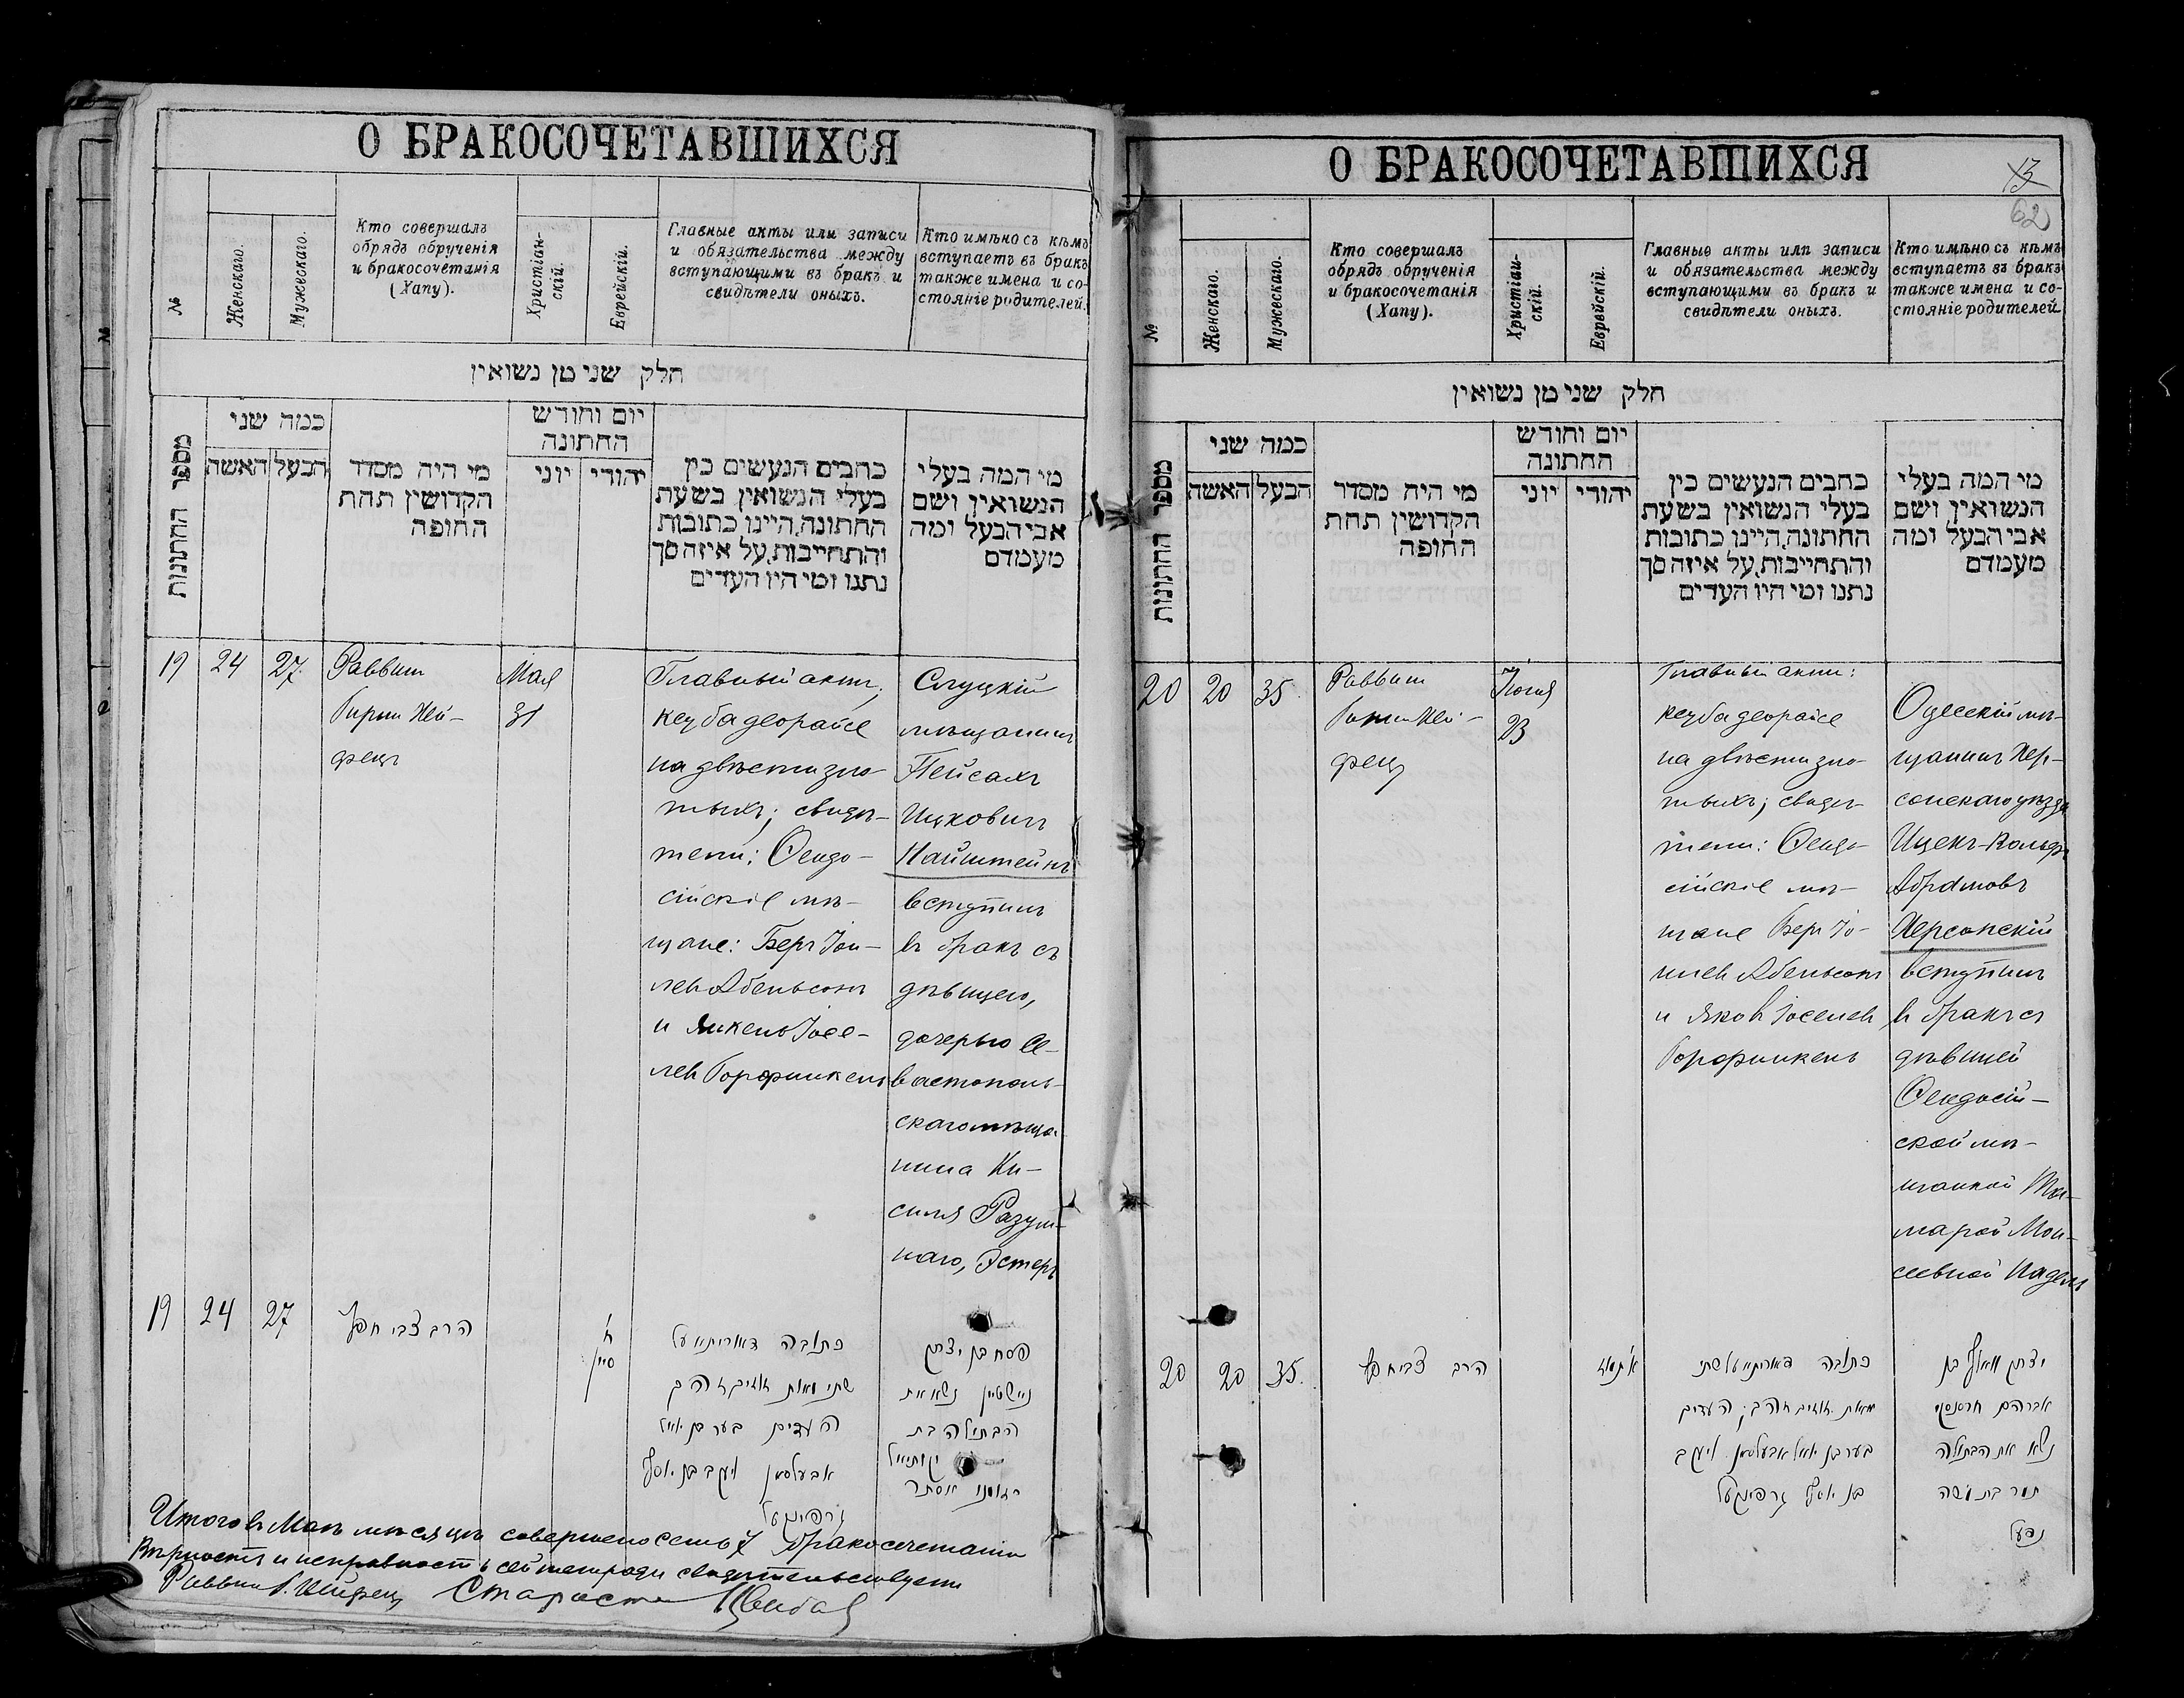 О БРАКОСОЧЕТАВШИХСЯ
№
Женскаго.
Мужескаго.
Кто совершалъ
обрядъ обрученія
и бракосочетанія
(Хапу).
Христіан-
скій.
Еврейскій.
Главные акты или записи
и обязательства между
вступающими въ бракъ и
свидѣтели оныхъ.
Кто имѣно съ кѣмъ
вступаетъ въ бракъ
также имена и со-
стояніе родителей.
חלק שני מן נשואין
מספר החתונות
כמה שני
האשה
הבעל
מי היה מסדר
הקדושין תחת
החופה
יום וחודש
החתונה
יוני
יהודי
כתבים הנעשים בין
בעלי הנשואין בשעת
החתונה, היינו כתובות
והתחייבות, על איזה סך
נתנו ומי היו העדים
מי המה בעלי
הנשואין ושם
אבי הבעל ומה
מעמדם
19
24
27
Раввинъ
Гирш Хей-
фецъ
Мая
31
Главный актъ,
кеуба деорайсе
на двѣсти зло-
тыхъ; свидѣ-
тели: Ѳеодо-
сійскіе мѣ-
щане: Беръ Іои-
лев Абельсонъ
и Янкель Іосе-
лев Горфинкель
Слуцкій
мѣщанинъ
Пейсахъ
Ицковичъ
Найштейнъ
вступилъ
въ бракъ съ
дѣвицею,
дочерью Се-
вастополь-
скаго мѣща-
нина Ки-
силя Разум-
наго, Эстеръ
19
24
27
הרב צבי חפץ
ח'
סיון
כתובה דאורייתא על
שתי מאות זהובים
העדים בער בן יואל
אבעלסאן ויעקב בן יוסף
גרפינקעל
פסח בן יצחק
ניישטיין נשא את
הבתולה בת
יקותיאל
ראזומנו אסתר
Итого въ Маѣ мѣсяцѣ совершено семь 7 бракосочетаній
Вѣрность и исправность сей тетради свидѣтельствуемъ
Раввинъ Г. Хейфецъ Староста
О БРАКОСОЧЕТАВШИХСЯ
13
62
№
Женскаго.
Мужескаго.
Кто совершалъ
обрядъ обрученія
и бракосочетанія
(Хапу).
Христіан-
скій.
Еврейскій.
Главные акты или записи
и обязательства между
вступающими въ бракъ и
свидѣтели оныхъ.
Кто имѣно съ кѣмъ
вступаетъ въ бракъ
также имена и со-
стояніе родителей
חלק שני מן נשואין
מספר החתונות
כמה שני
האשה
הבעל
מי היה מסדר
הקדושין תחת
החופה
יום וחודש
החתונה
יוני
יהודי
כתבים הנעשים בין
בעלי הנשואין בשעת
החתונה, היינו כתובות
והתחייבות, על איזה סך
נתנו ומי היו העדים
מי המה בעלי
הנשואין ושם
אבי הבעל ומה
מעמדם
20
20
35
Раввинъ
Гирш Хей-
фецъ
Іюня
23
Главный актъ:
кеуба деорайсе
на двѣсти зло-
тыхъ; свидѣ-
тели: Ѳеодо-
сійскіе мѣ-
щане Беръ Іо-
илев Абельсонъ
и Яков Іоселев
Горфинкель
Одесскій мѣ-
щанинъ Хер-
сонскаго уѣзда
Ицекъ-Вольфъ
Абрамовъ
Херсонскій
вступилъ
въ бракъ съ
дѣвицей
Ѳеодосій-
ской мѣ-
щанкой Та-
марой Мои-
сеевной Надель
20
20
35
הרב צבי חפץ
א' תמוז
כתובה דאורייתא על שתי
מאות זהובים העדים
בער בן יואל אבעלסאן ויעקב
בן יוסף גרפינקעל
יצחק וואלף בן
אברהם חרסנסקי
נשא את הבתולה
תמר בת משה